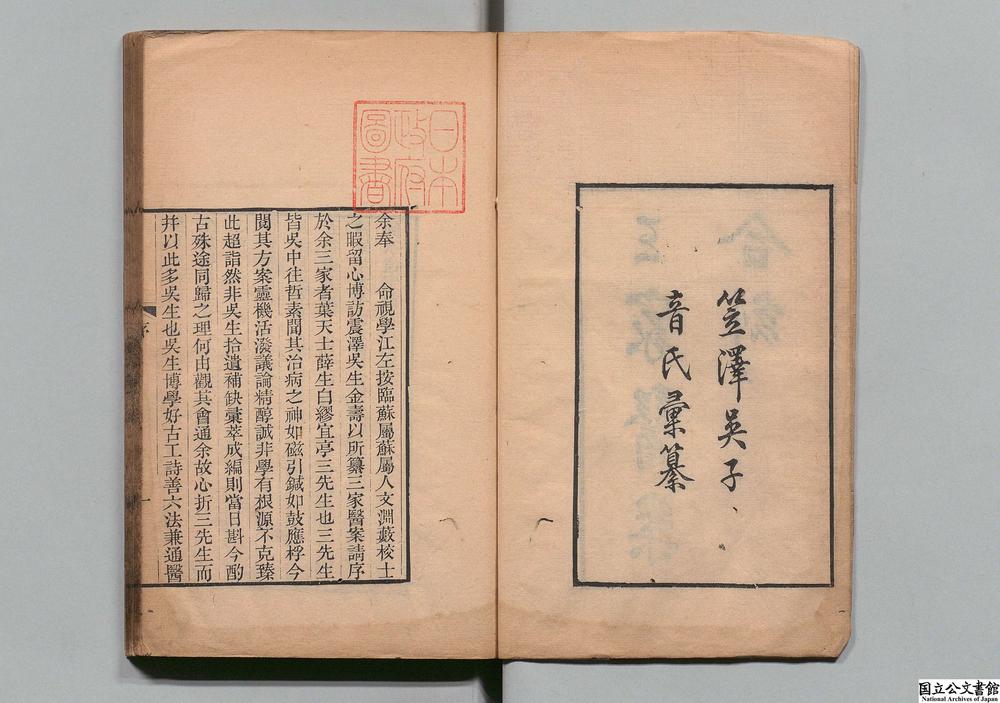 笠澤吳子
音氏彙纂
日本
政府
圖書
余奉 命視學江左按臨蘇屬蘇屬人文淵藪校士
之暇留心博訪震澤吳生金壽以所纂三家醫案請序
於余三家者葉天士薛生白繆宜亭三先生也三先生
皆吳中往哲素聞其治病之神如磁引鍼如鼓應桴今
閱其方案靈機活潑議論精醇誠非學有根源不克臻
此超詣然非吳生拾遺補缺彙萃成編則當日斟今酌
古殊途同歸之理何由觀其會通余故心折三先生而
幷以此多吳生也吳生博學好古工詩善六法兼通醫
序
一
国立公文書館
National Archives of Japan